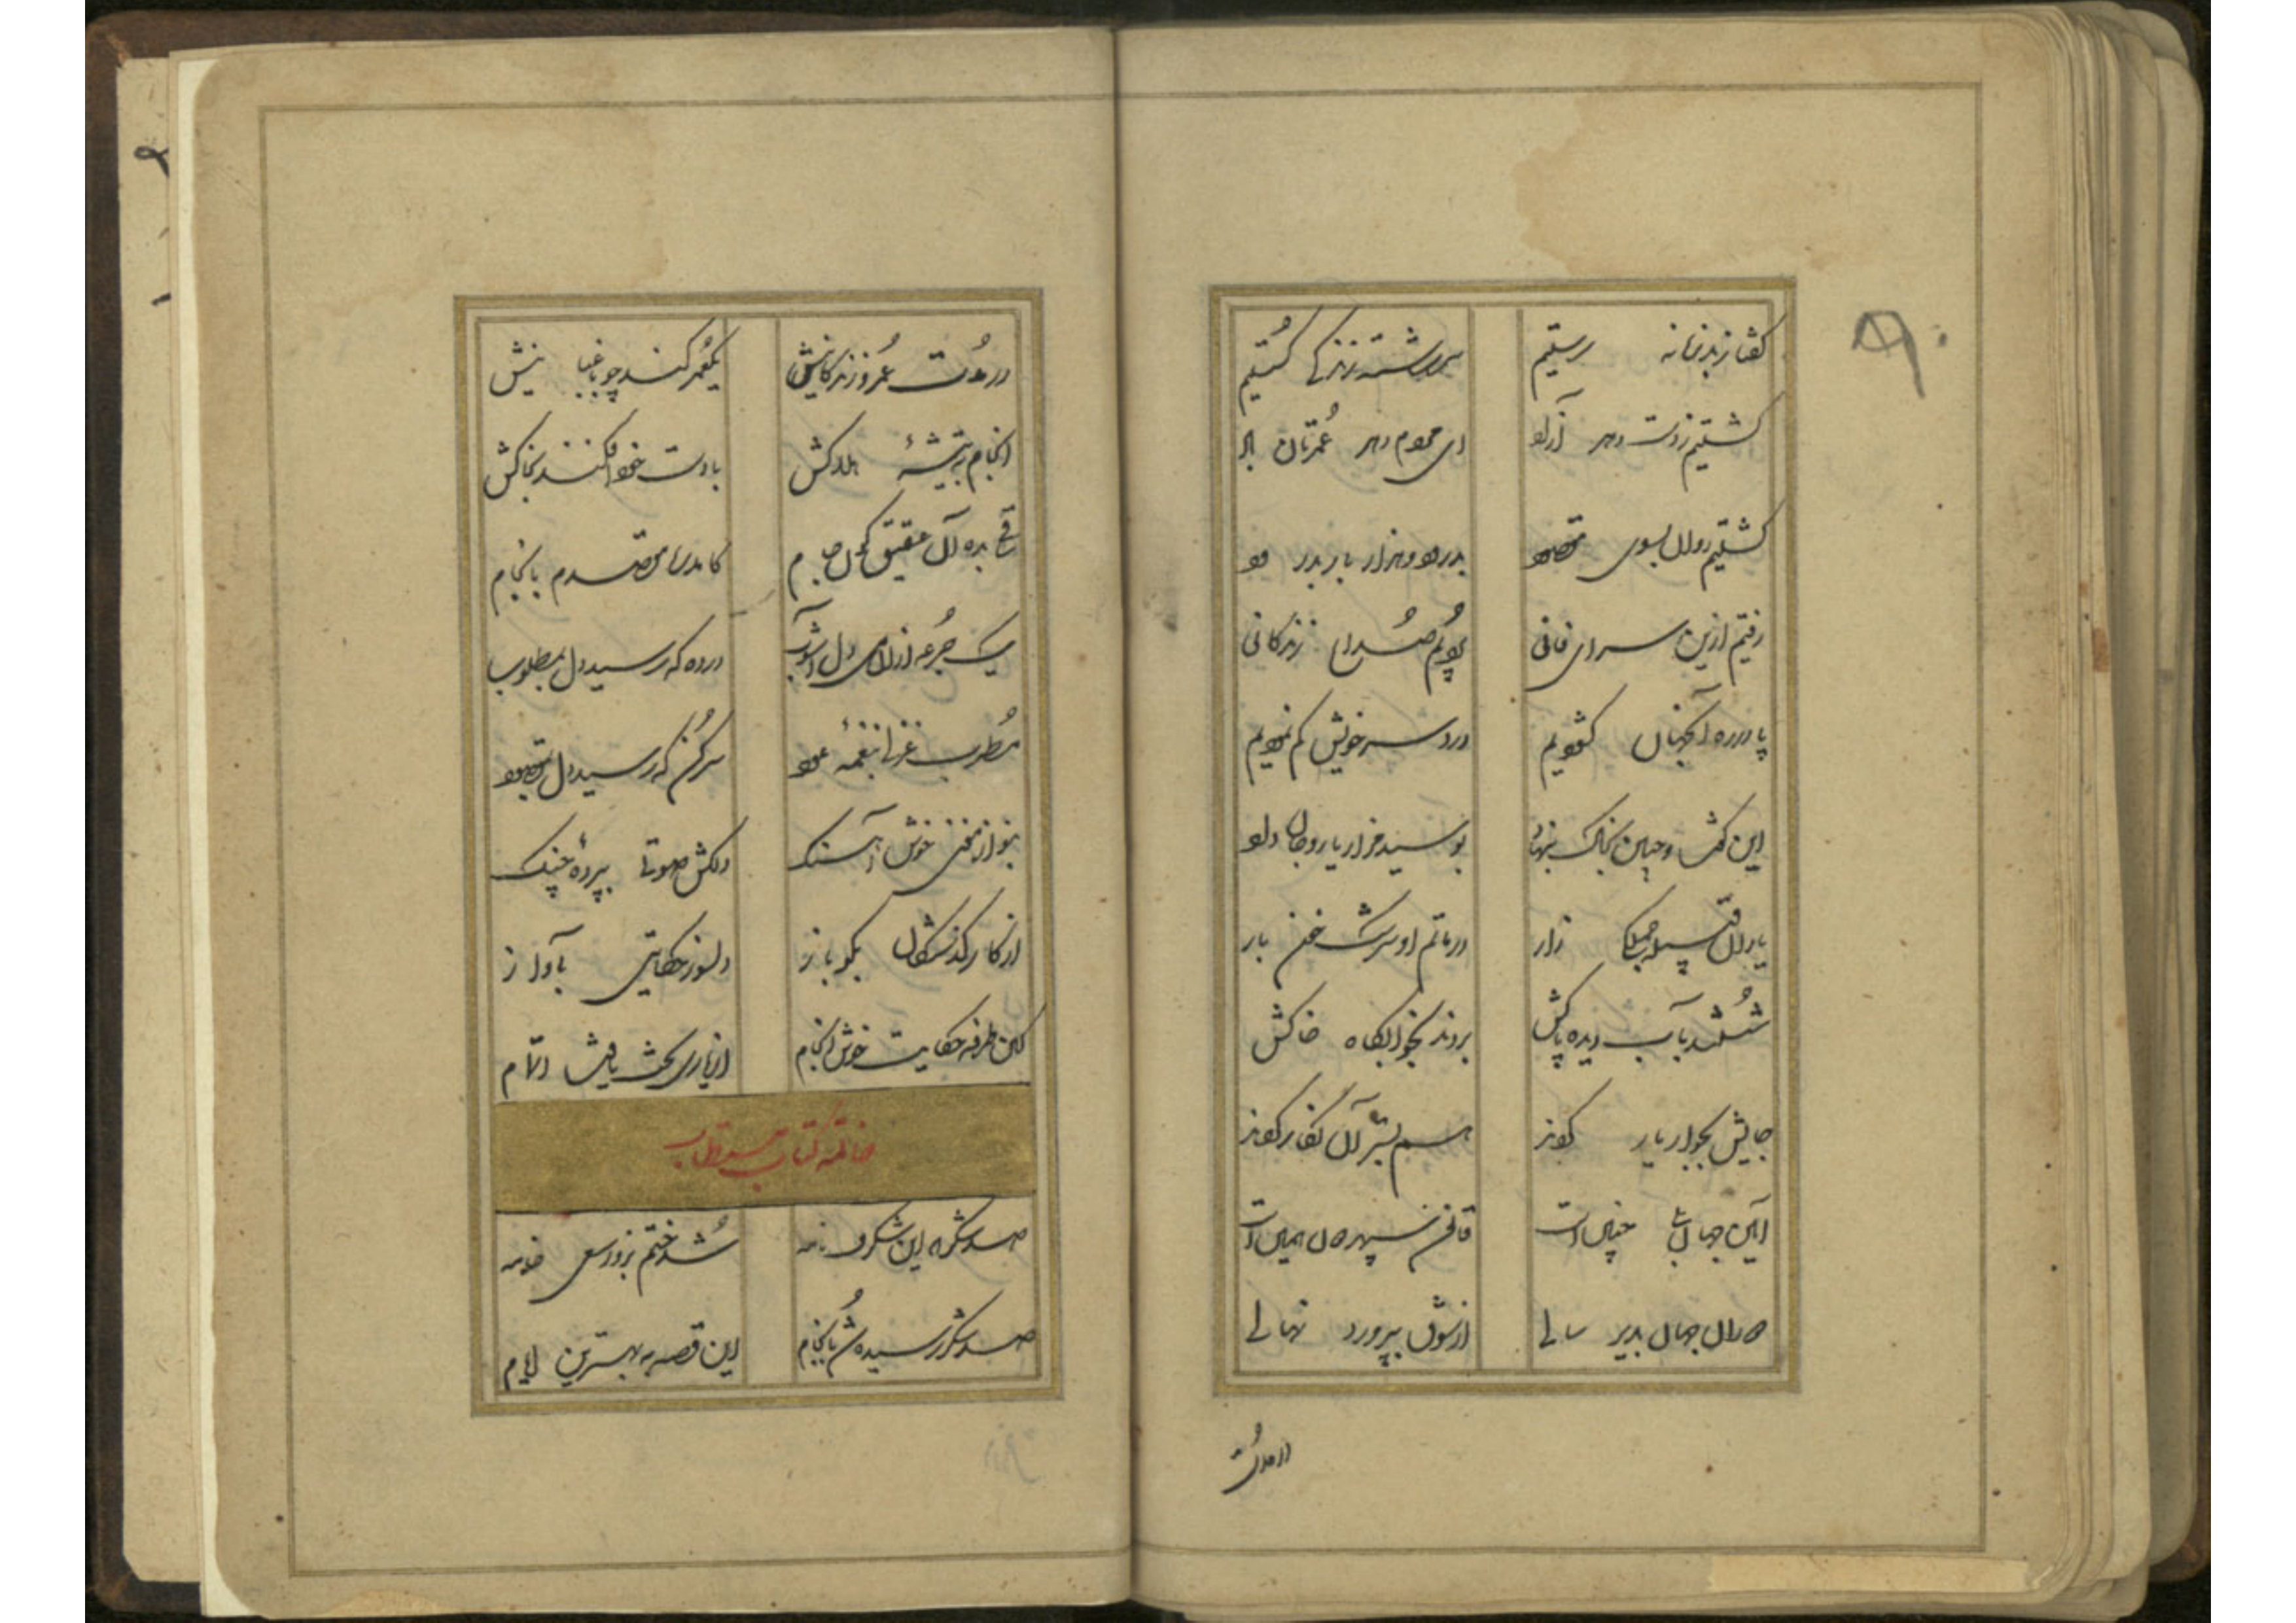 گفتا ز بد زمانه رستیم سررشته زندگی گسستیم
گشتیم ز دست دهر آزاد ای محروم دهر عمرتان باد
گشتیم روان بسوی مقصود بدرود هزار بار بدرود
رفتیم ازین سرای فانی زندگانی
پا در ره آنجهان گشودیم درد سر خویش کم نمودیم
این گفت و جبین بخاک بنهاد بوسید مزار یار و جان داد
یاران قبیله جملگی زار در ماتم او سرشک خون بار
شستند بآب دیده پاکش بردند بخوابگاه خاکش
جایش بجوار یار کردند هم بستر آن نگار کردند
آیین جهان چنین است قانون سپهر همین است
جهان بدیر سالی از شوق بپرورد نهالی
در مدت
در مدت عمر و زندگانیش یکعمر کند چو باغبانیش
انجام به تیشه هلاکش با دست خود افکند بخاکش
بده آن عقیق گون جام کامد بانجام
یک جرعه از در ده که رسید دل بمطلوب
مطرب غزلی بنغمه عود سر کن که رسید دل بمقصود
بنواز مغنی خوش آهنگ دلکش صوتی بپرده چنگ
از کار گذشتگان بگو باز دلسوز حکایتی بآواز
کاین طرفه حکایت خوش انجام از یاری بخت یافت اتمام
خاتمه کتاب
صد شکر که این شگرف نامه شد ختم بزور سعی خامه
صد شکر رسید بانجام این قصه به بهترین ایام